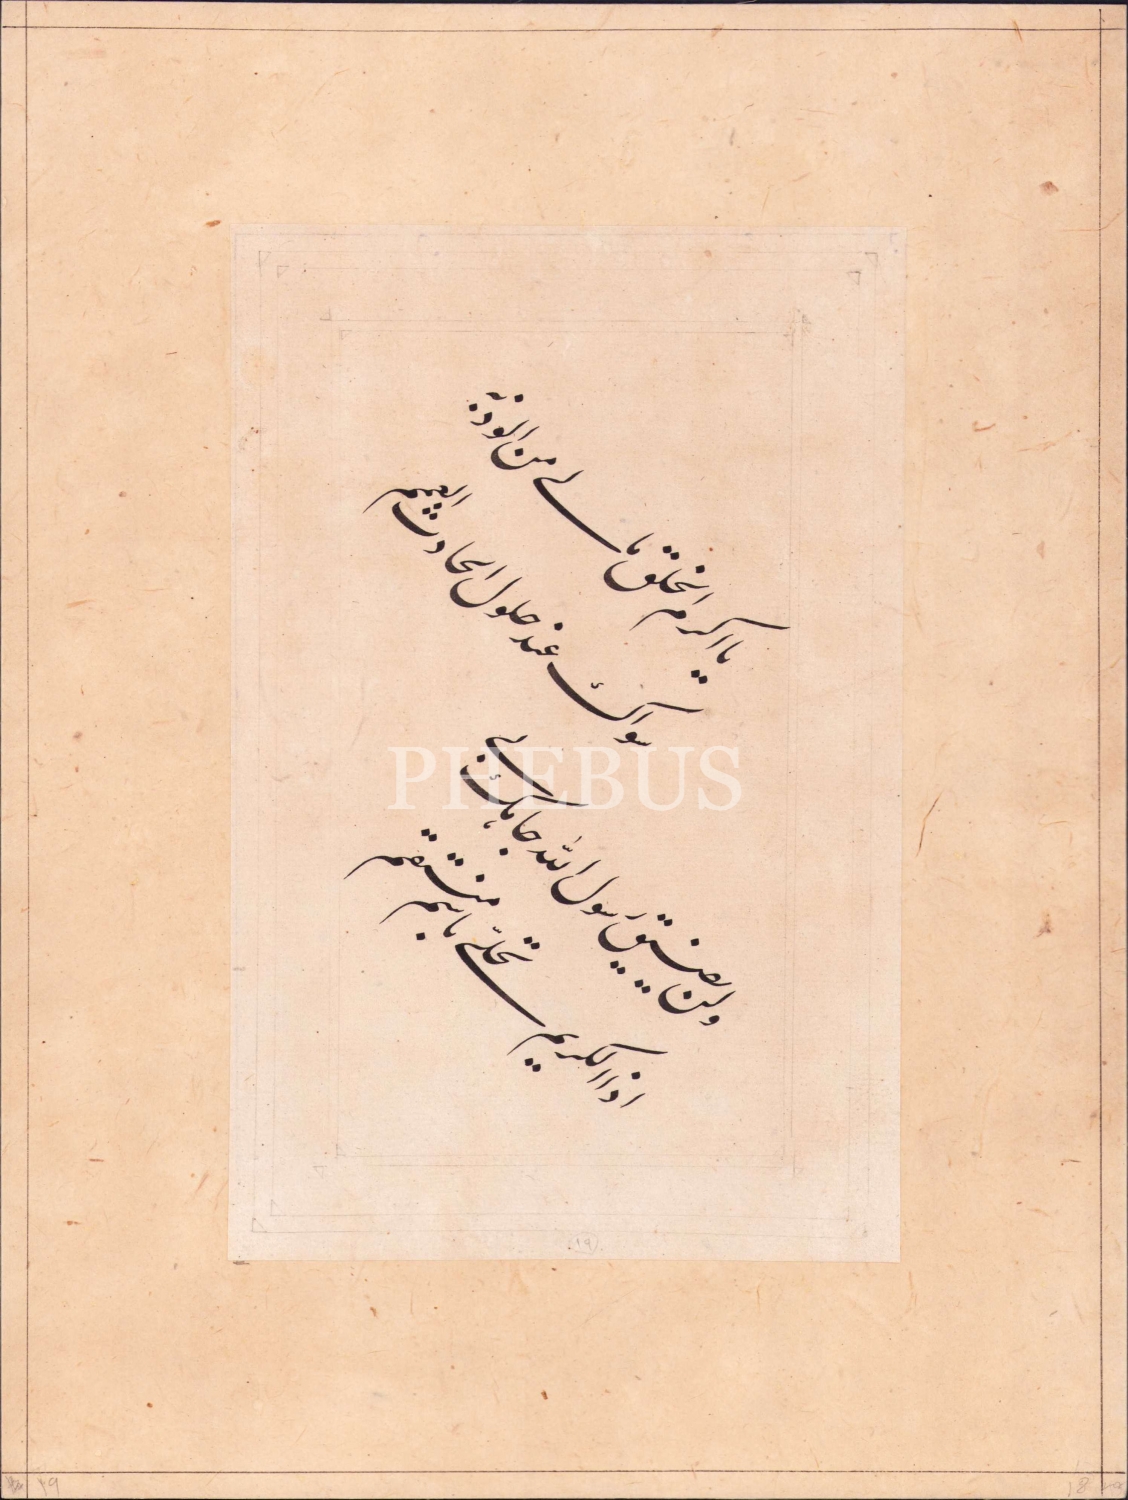 يا اكرم الخلق مالي من الوذ به
سواك عند حلول الحادث العمم
ولن يضيق رسول الله جاهك بي
اذا الكريم تحلّى باسم منتقم
PHEBUS
(١٩)
١٩